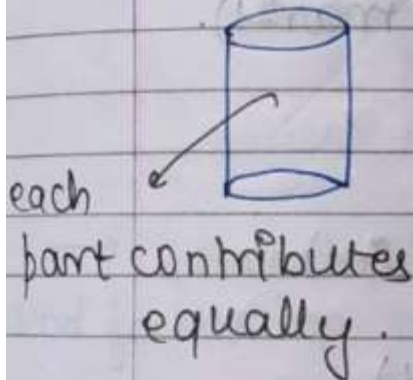 each
part contributes
equally.